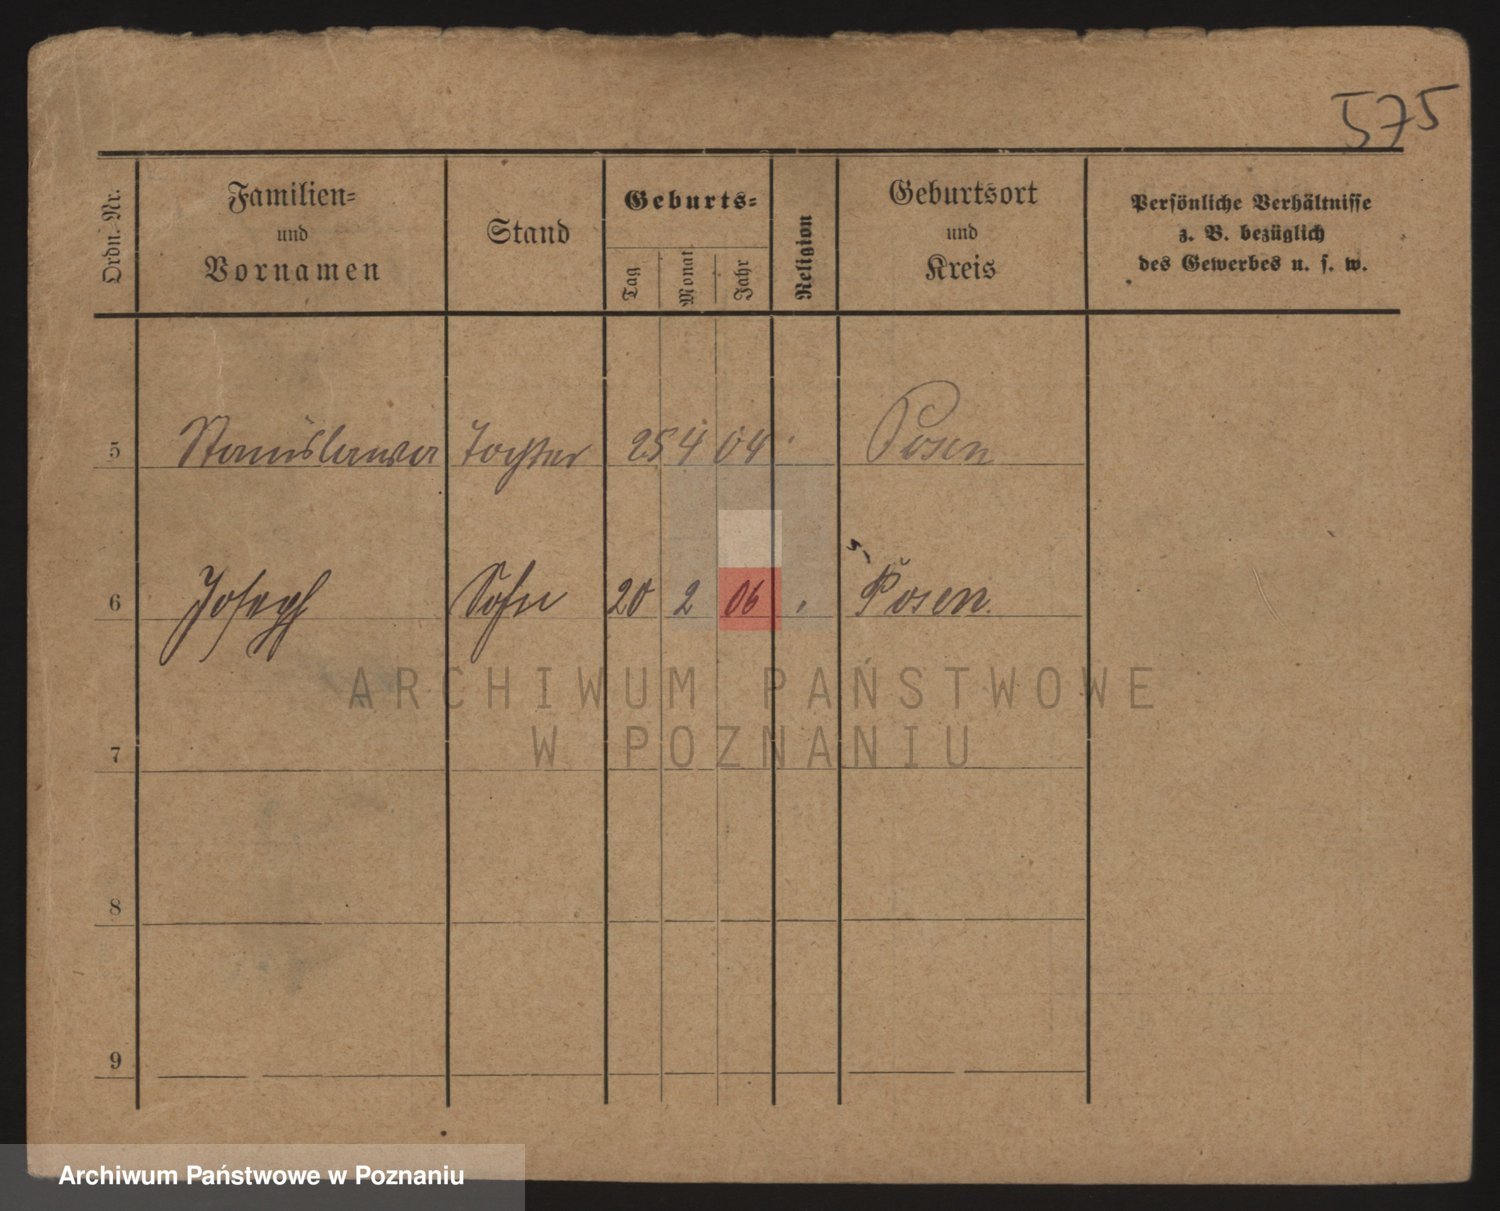 575
Ordn. Nr.
Familien=
und
Vornamen
Stand
Geburts=
Tag
Monat
Jahr
Religion
Geburtsort
und
Kreis
Persönliche Verhältnisse
z. B. bezüglich
des Gewerbes u. s. w.
5 Stanislawa Tochter 25 4 04 Posen
6 Joseph Sohn 20 2 06 Posen.
ARCHIWUM PAŃSTWOWE
W POZNANIU
7
8
9
Archiwum Państwowe w Poznaniu